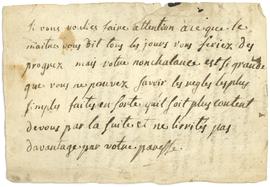 Si vous vouliez faire attention a ce que le
maitre vous dit tous les jours vous feriez des
progrez mais votre nonchalance est si grande
que vous ne pouvez savoir les regles les plus
simples faites en sorte quil soit plus content
de vous par la suite et ne lirrités pas
davantage par votre paresse.